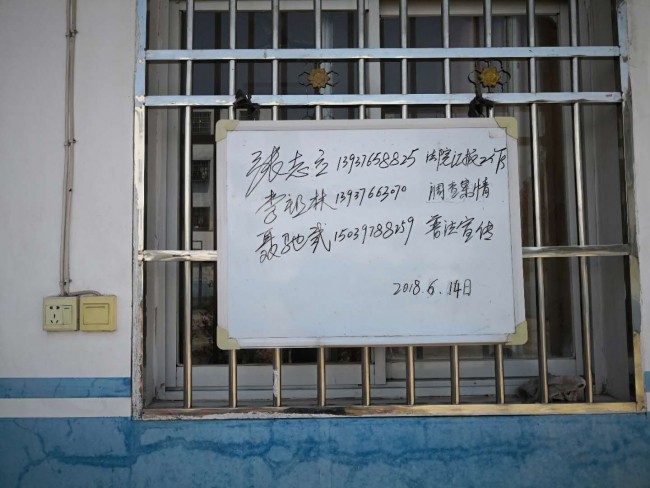 张志立 13937658825 法院汇报工作
李祖林 13937663070 调查案情
聂驰威 15039788259 普法宣传
2018.6.14日